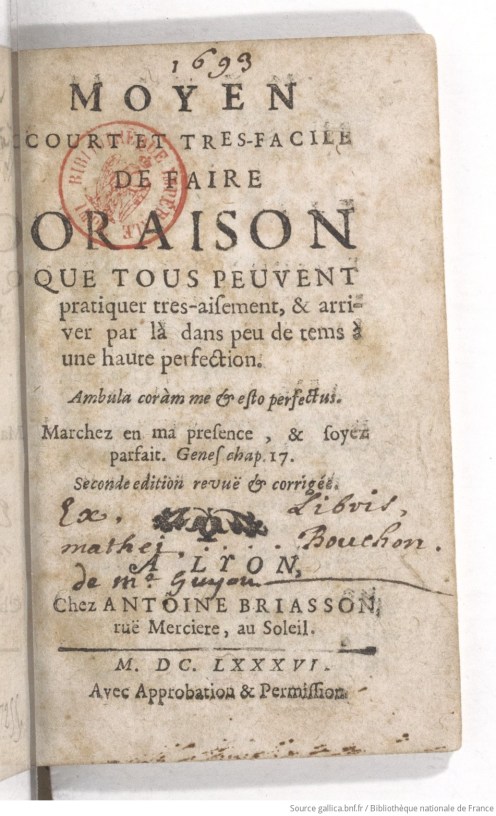 1693
MOYEN
COURT ET TRES-FACILE
DE FAIRE
ORAISON
QUE TOUS PEUVENT
pratiquer tres-aiſement, & arri-
ver par là dans peu de tems à
une haute perfection.
Ambula coràm me & eſto perfectus.
Marchez en ma preſence, & ſoyez
parfait. Geneſ chap. 17.
Seconde edition revuë & corrigée.
Ex. Libris,
mathei . . . . Bouchon.
A LYON,
de me. Guyon
Chez ANTOINE BRIASSON,
ruë Merciere, au Soleil.
M. DC. LXXXVI.
Avec Approbation & Permiſſion
Source gallica.bnf.fr / Bibliothèque nationale de France